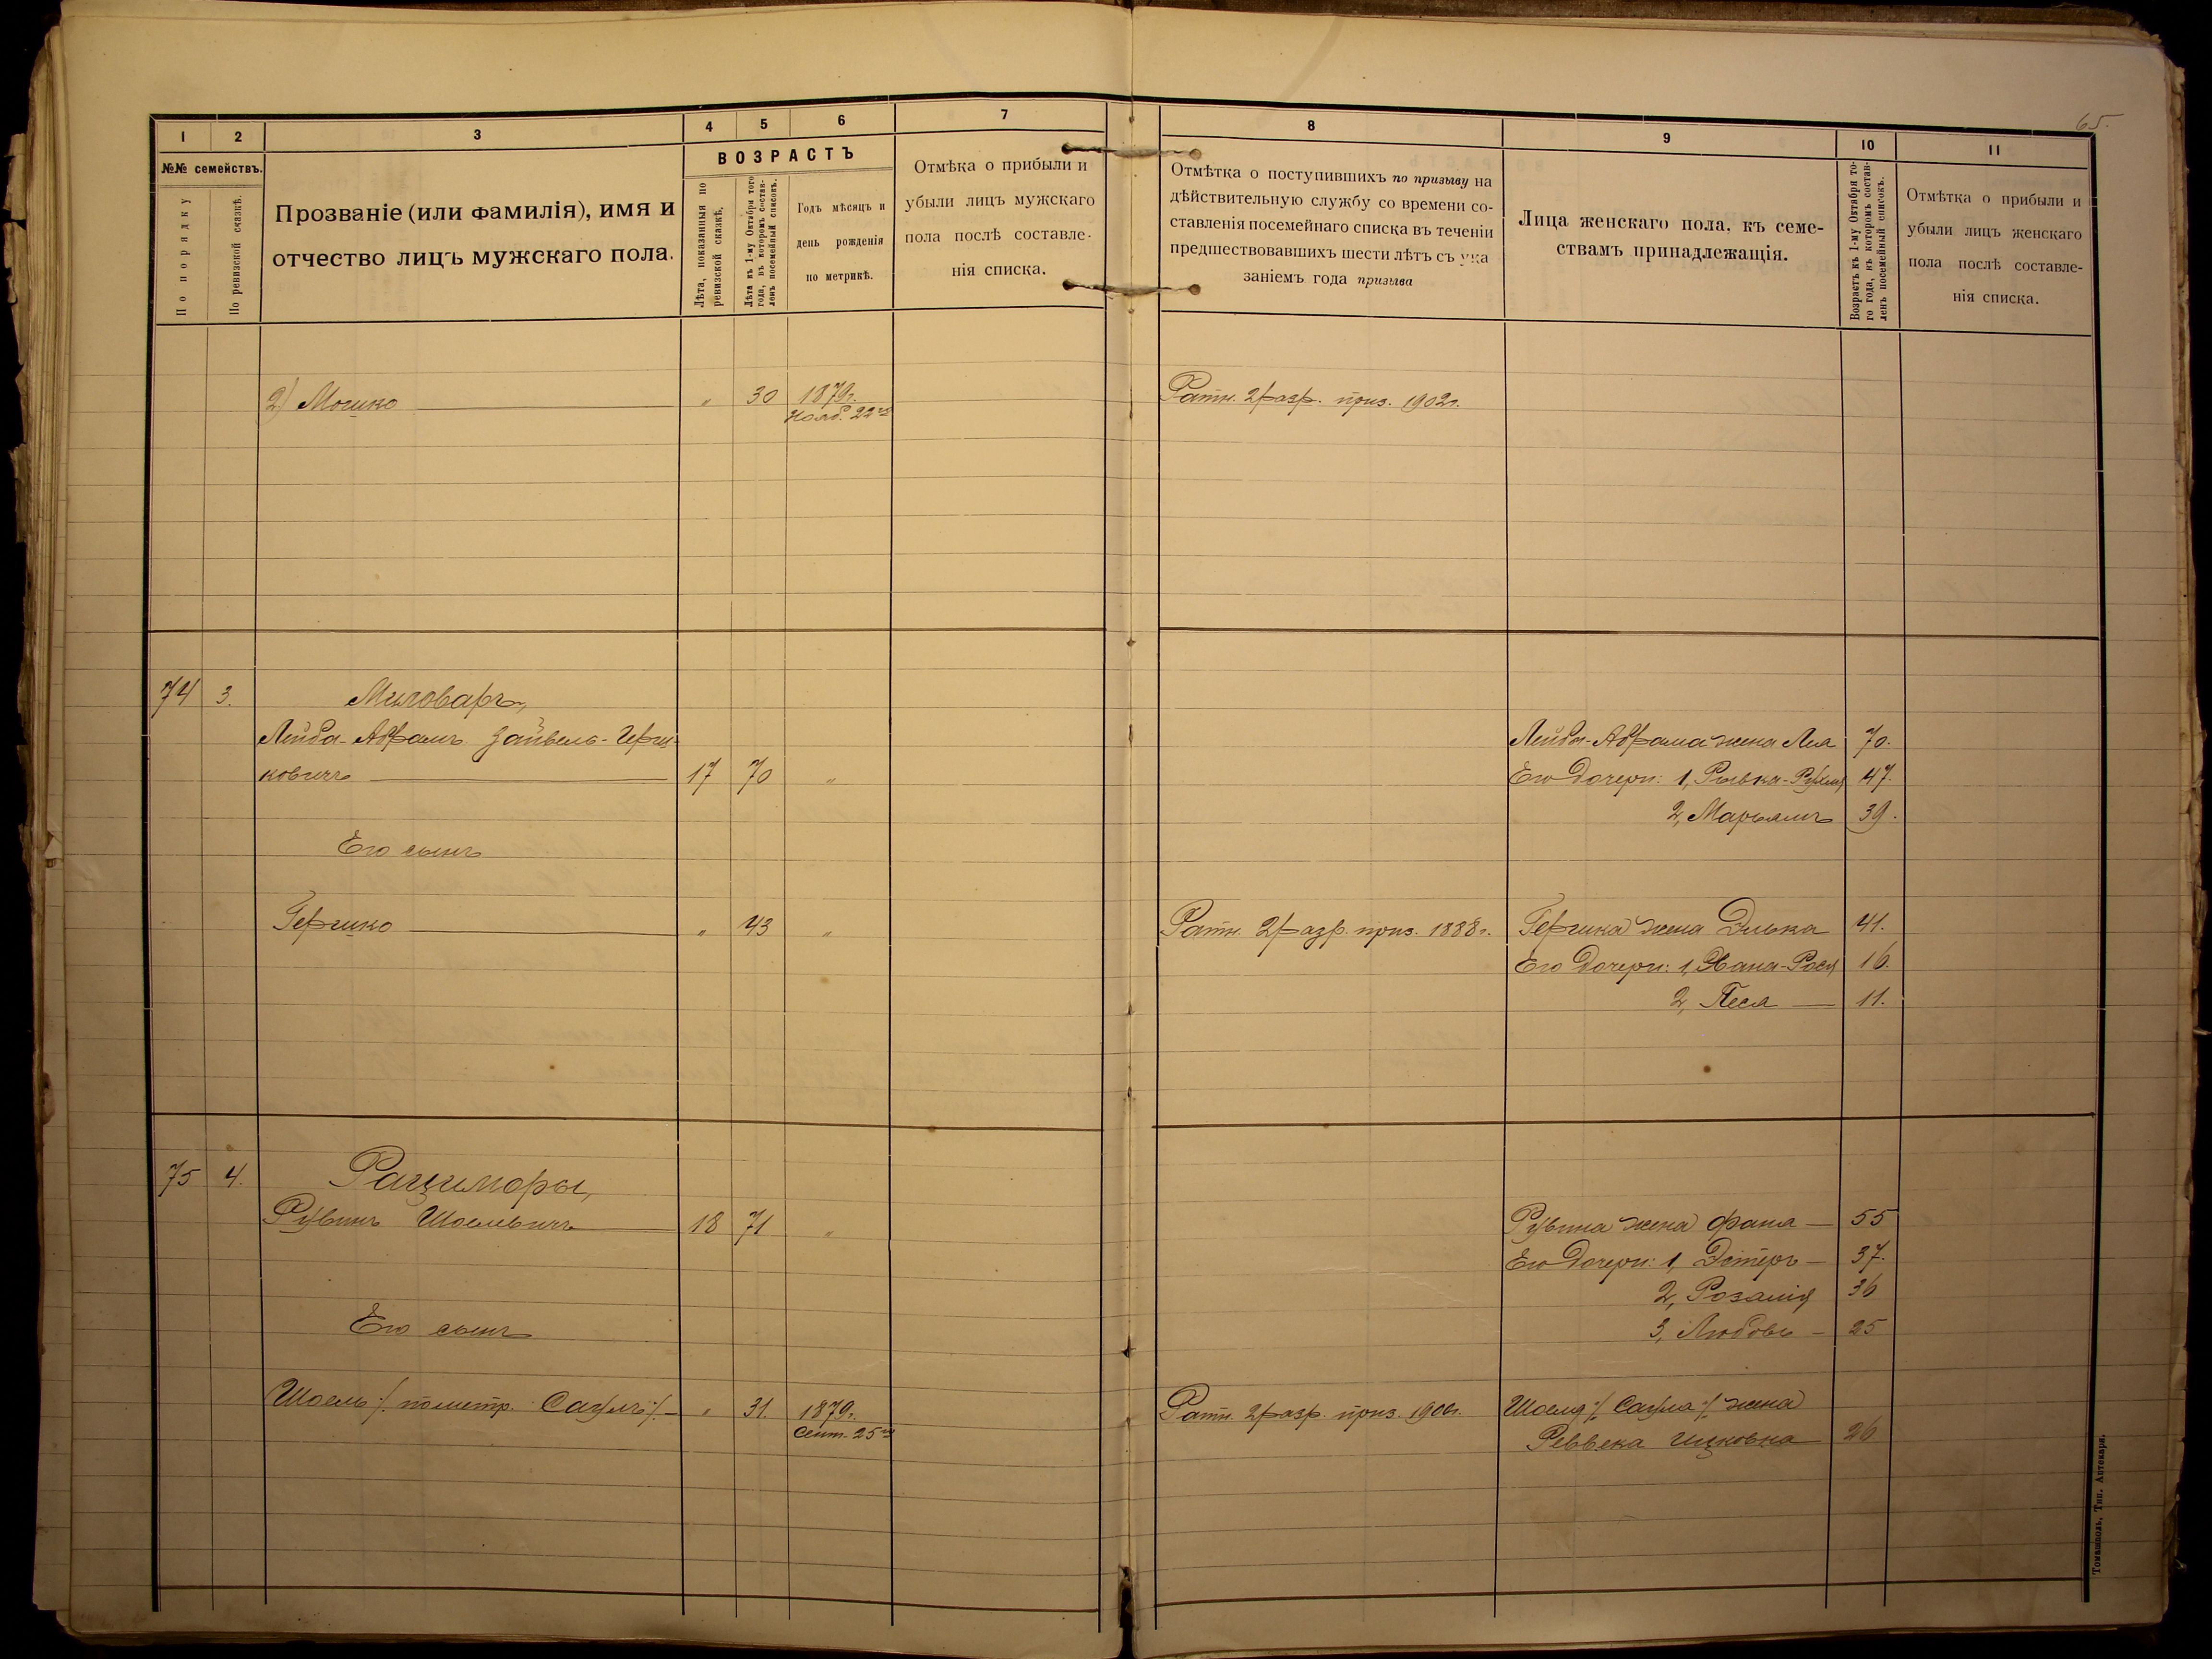 65.
1 2 3 4 5 6 7 8 9 10 11
№№ семействъ.
По порядку
По ревизской сказкѣ.
Прозваніе (или фамилія), имя и
отчество лицъ мужскаго пола.
ВОЗРАСТЪ
Лѣта, показанныя по
ревизской сказкѣ.
Лѣта къ 1-му Октября того
года, въ которомъ состав-
ленъ посемейный списокъ.
Годъ мѣсяцъ и
день рожденія
по метрикѣ.
Отмѣка о прибыли и
убыли лицъ мужскаго
пола послѣ составле-
нія списка.
Отмѣтка о поступившихъ по призыву на
дѣйствительную службу со времени со-
ставленія посемейнаго списка въ теченіи
предшествовавшихъ шести лѣтъ съ ука
заніемъ года призыва
Лица женскаго пола, къ семе-
ствамъ принадлежащія.
Возрастъ къ 1-му Октября то-
го года, въ которомъ состав-
ленъ посемейный списокъ.
Отмѣтка о прибыли и
убыли лицъ женскаго
пола послѣ составле-
нія списка.
2) Мошко — " 30 1879г. Ратн. 2 разр. приз. 1902г.
Нояб. 22го
74 3. Миловаръ,
Лейба-Абрамъ Зайвель-Герш- Лейбы-Абрама жена Лея 70.
ковичъ — 17 70 " Его дочери: 1, Рывка-Рухля 47.
2, Марьямъ 39.
Его сынъ
Гершко — " 43 " Ратн. 2 разр. приз. 1888г. Гершка жена Элька 41.
Его дочери: 1, Хана-Рося 16.
2, Песя — 11.
75 4. Рациморы,
Рувинъ Шоелевичъ — 18 71 " Рувина жена Фаня — 55
Его дочери: 1, Эстеръ — 37.
2, Розалія 36
Его сынъ 3, Любовь — 25
Шоель /. пометр. Саулъ /. — " 31. 1879г. Ратн. 2 разр. приз. 1900г. Шоеля /. Саула /. жена
Сент. 25го Реввека Ицковна 26
Томашполь, Тип. Аптекаря.